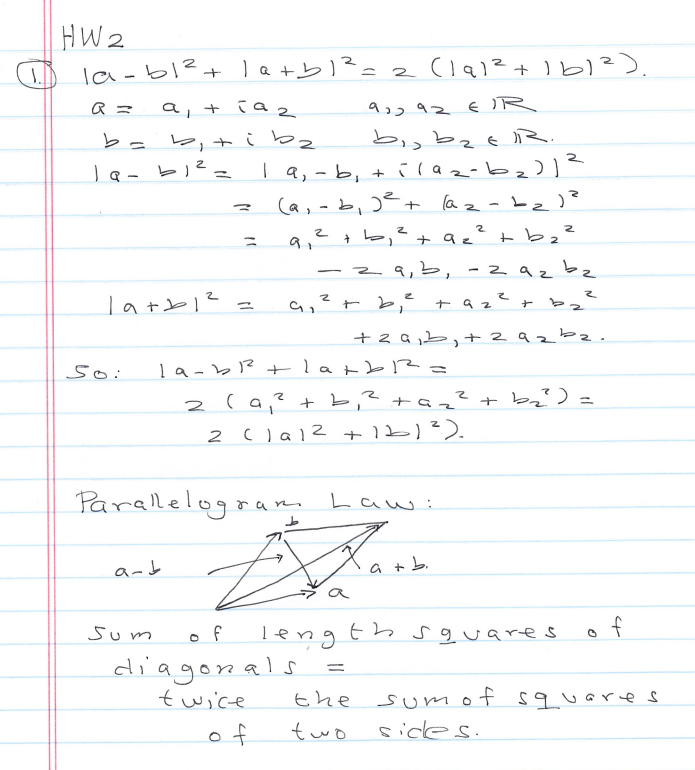 HW2
1. |a-b|² + |a+b|² = 2 (|a|² + |b|²).
a = a₁ + ia₂ a₁, a₂ ∈ ℝ
b = b₁ + i b₂ b₁, b₂ ∈ ℝ.
|a-b|² = | a₁-b₁ + i(a₂-b₂)|²
= (a₁-b₁)² + (a₂-b₂)²
= a₁² + b₁² + a₂² + b₂²
- 2a₁b₁ - 2a₂b₂
|a+b|² = a₁² + b₁² + a₂² + b₂²
+2a₁b₁ + 2a₂b₂.
So: |a-b|² + |a+b|² =
2 (a₁² + b₁² + a₂² + b₂²) =
2 (|a|² + |b|²).
Parallelogram Law:
b
a-b
a+b.
a
sum of length squares of
diagonals =
twice the sum of squares
of two sides.